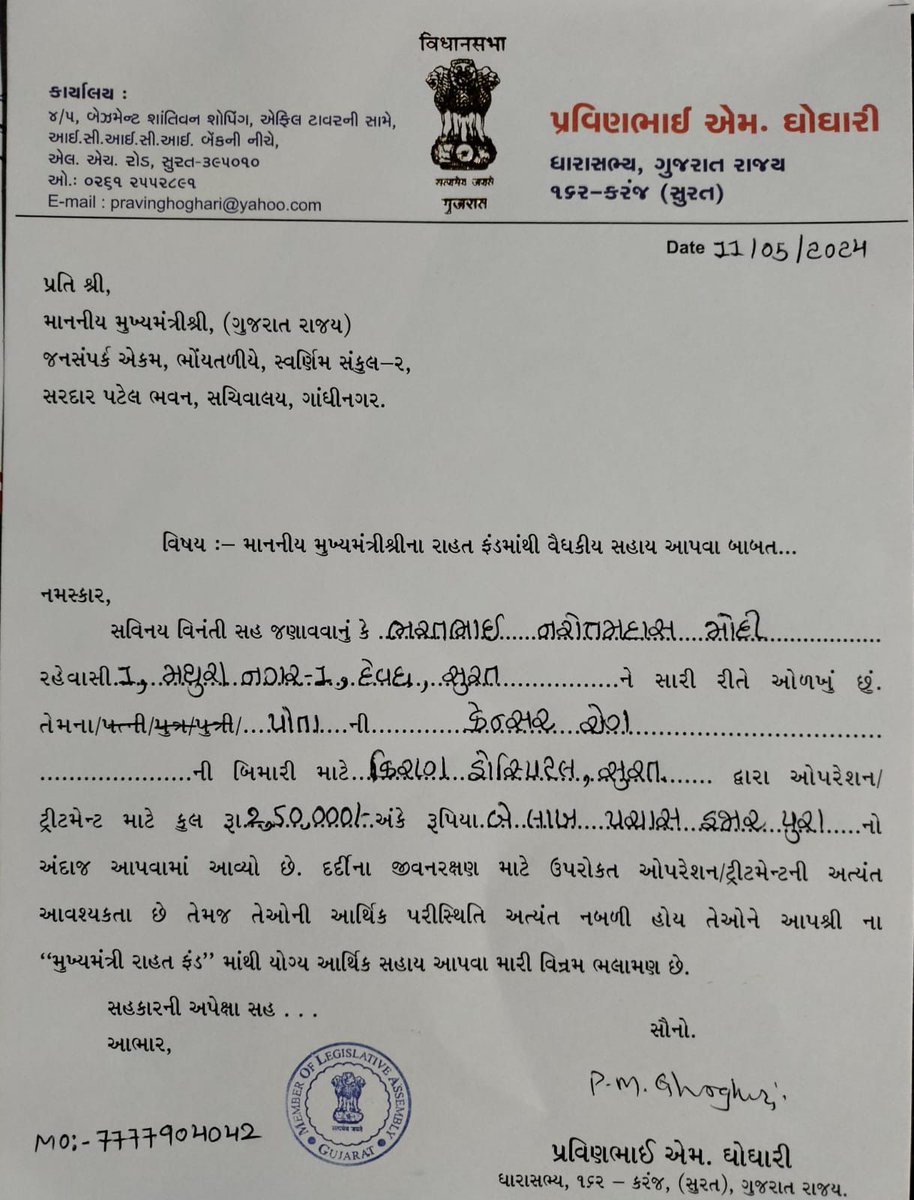 વિધાનસભા
સત્યમેવ જયતે
ગુજરાત
કાર્યાલય :
૪/૫, બેઝમેન્ટ શાંતિવન શોપિંગ, એફિલ ટાવરની સામે,
આઈ.સી.આઈ.સી.આઈ. બેંકની નીચે,
એલ. એચ. રોડ, સુરત-૩૯૫૦૧૦
ઓ.: ૦૨૬૧ ૨૫૫૨૮૯૧
E-mail : pravinghoghari@yahoo.com
પ્રવિણભાઈ એમ. ઘોઘારી
ધારાસભ્ય, ગુજરાત રાજ્ય
૧૬૨-કરંજ (સુરત)
Date 11/05/2024
પ્રતિ શ્રી,
માનનીય મુખ્યમંત્રીશ્રી, (ગુજરાત રાજ્ય)
જનસંપર્ક એકમ, ભોંયતળીયે, સ્વર્ણિમ સંકુલ-૨,
સરદાર પટેલ ભવન, સચિવાલય, ગાંધીનગર.
વિષય :- માનનીય મુખ્યમંત્રીશ્રીના રાહત ફંડમાંથી વૈદ્યકીય સહાય આપવા બાબત...
નમસ્કાર,
સવિનય વિનંતી સહ જણાવવાનું કે ભરતભાઈ નરોતમદાસ મોદી
રહેવાસી 1, મથુરા નગર-1, દેવધ, સુરત ને સારી રીતે ઓળખું છું.
તેમના/પત્ની/પુત્ર/પુત્રી/ પોતા ની કેન્સર રોગ
ની બિમારી માટે કિરણ હોસ્પિટલ, સુરત દ્વારા ઓપરેશન/
ટ્રીટમેન્ટ માટે કુલ રૂા. 2,50,000/- અંકે રૂપિયા બે લાખ પચાસ હજાર પુરા નો
અંદાજ આપવામાં આવ્યો છે. દર્દીના જીવનરક્ષણ માટે ઉપરોક્ત ઓપરેશન/ટ્રીટમેન્ટની અત્યંત
આવશ્યકતા છે તેમજ તેઓની આર્થિક પરીસ્થિતિ અત્યંત નબળી હોય તેઓને આપશ્રી ના
“મુખ્યમંત્રી રાહત ફંડ” માંથી યોગ્ય આર્થિક સહાય આપવા મારી વિન્રમ ભલામણ છે.
સહકારની અપેક્ષા સહ . . .
આભાર,
સૌનો.
P.M. Ghoghari
MEMBER OF LEGISLATIVE ASSEMBLY
GUJARAT
MO:- 7777904042
પ્રવિણભાઈ એમ. ઘોઘારી
ધારાસભ્ય, ૧૬૨ - કરંજ, (સુરત), ગુજરાત રાજ્ય.